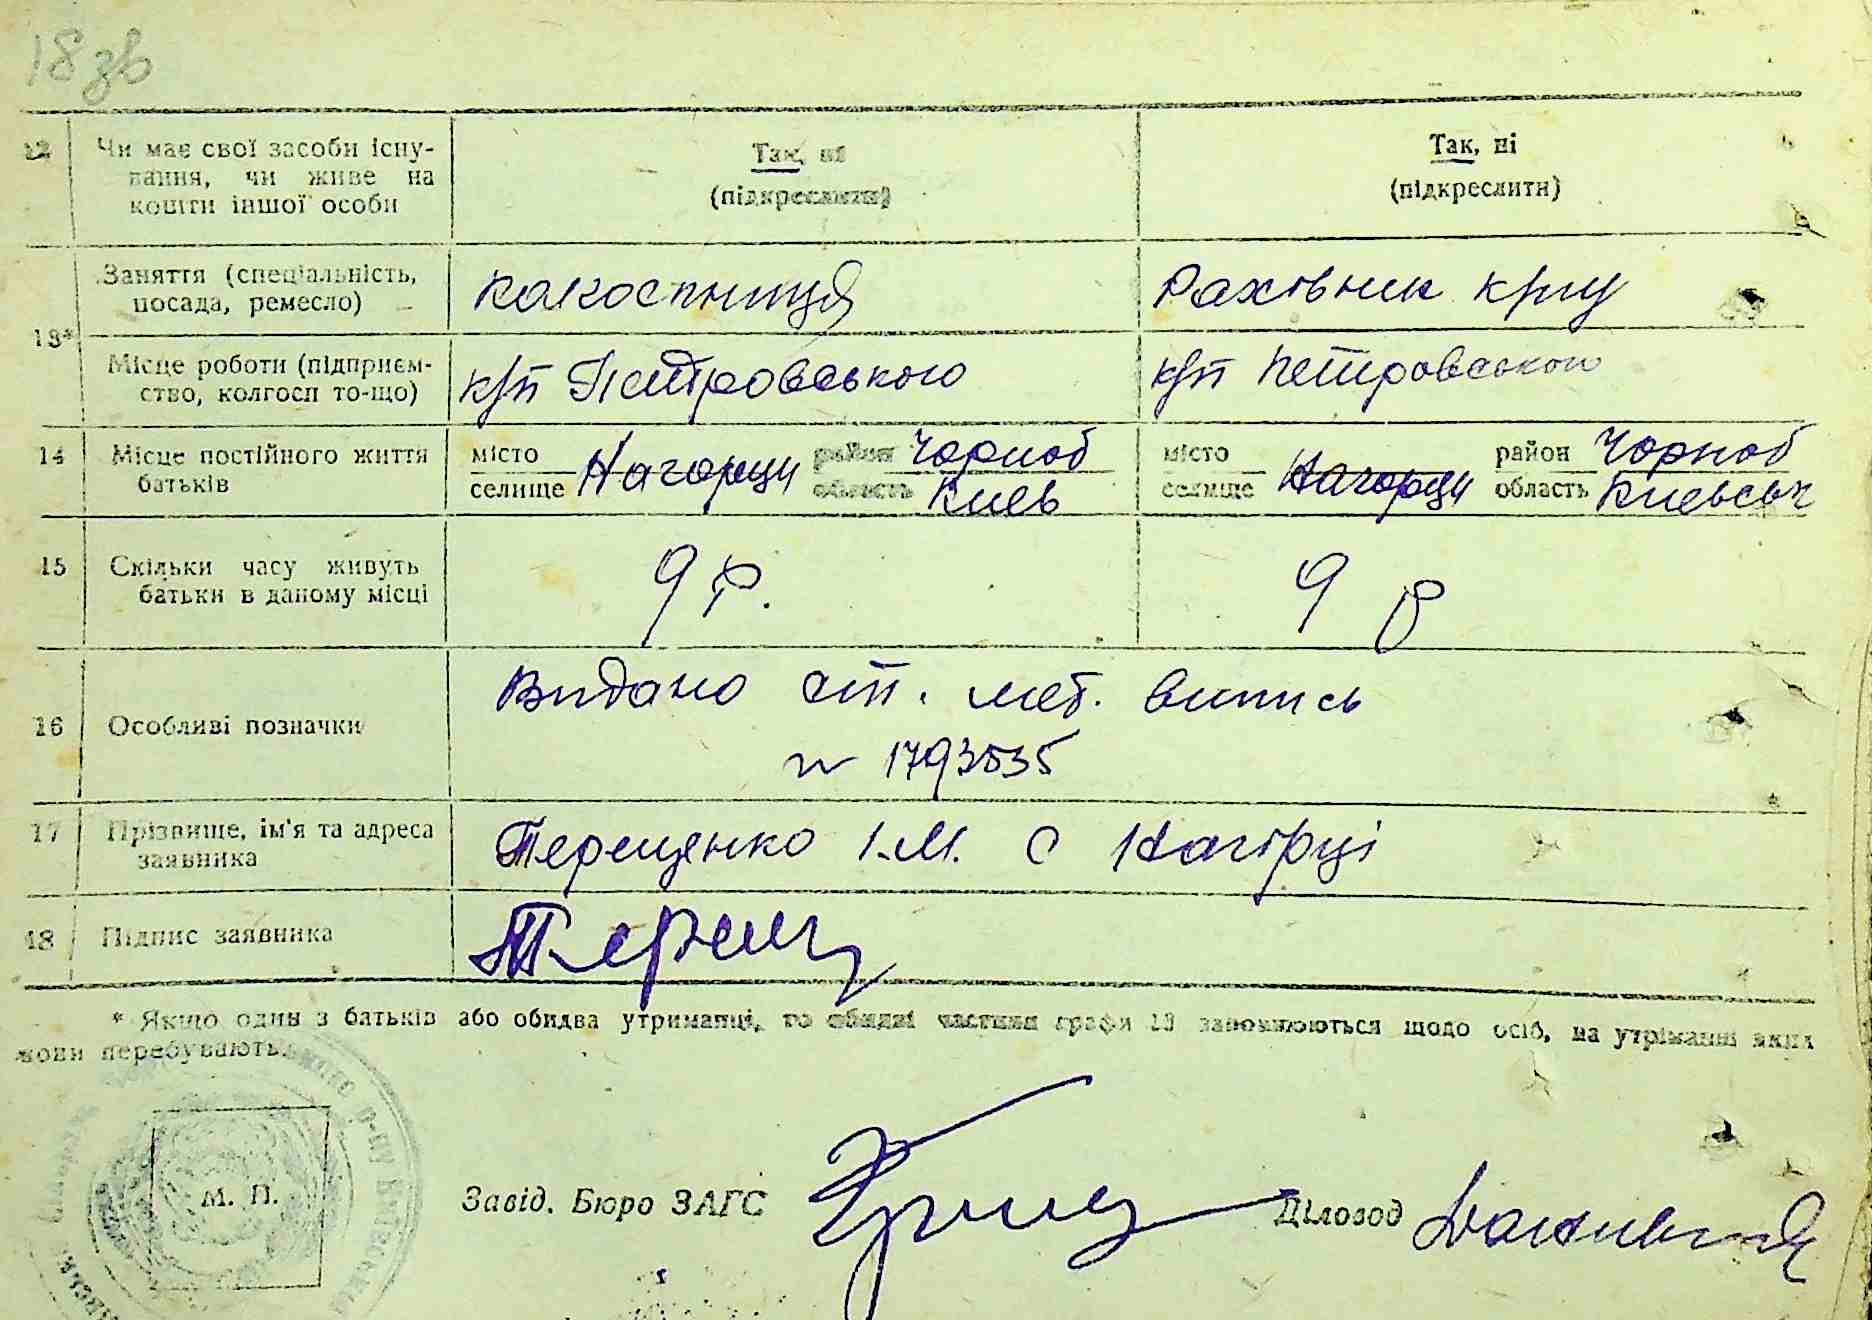 18 зв
12 Чи має свої засоби існу-
вання, чи живе на
кошти іншої особи
Так, ні
(підкреслити)
Так, ні
(підкреслити)
13*
Заняття (спеціальність,
посада, ремесло)
колхоспниця
Рахівник
Місце роботи (підприєм-
ство, колгосп то-що)
к/п Петровського
к/п Петровського
14 Місце постійного життя
батьків
місто
селище Нагорци
район Чорноб
область Киев
місто
селище Нагорци
район Чорноб
область Киевськ
15 Скільки часу живуть
батьки в даному місці
9 р.
9 р
16 Особливі позначки
Видано мет. випись
1793535
17 Прізвище, ім'я та адреса
заявника
Терещенко І.М. с Нагірці
18 Підпис заявника
Терещ
* Якщо один з батьків або обидва утриманці, то обидві частини графи 13 заповнюються щодо осіб, на утриманні яких
вони перебувають.
М. П.
Завід. Бюро ЗАГС
Діловод